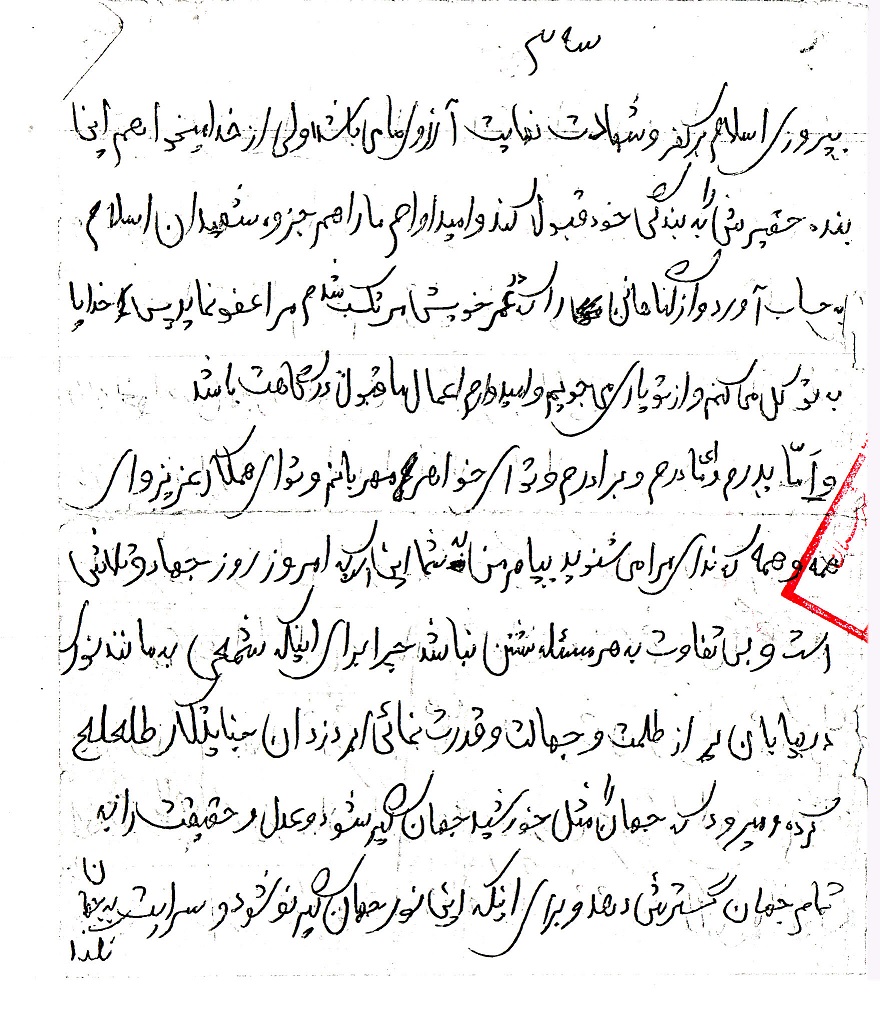 ۳ سه
پیروزی اسلام بر کفر و شهادت نهایت آرزوی مامی باشد ولی از خدا میخواهم این
بنده حقیرش را به بندگی خود قبول کند و امیداوام ما را هم جزوء شهیدان اسلام
به حساب آورد و از گناهانی را که در عمر خویش مرتکب شدم مرا عفو نماید پس خدایا
به تو کل می کنم و از تو یاری می جویم و امید وارم اعمال ما قبول درگاهت باشد
و اَمّا پدرم و ای مادرم و برادرم و تو ای خواهر مهربانم و تو ای همکار عزیز و ای
همه و همه که ندای مرا می شنوید پیام من به شما این است که امروز روز جهاد و تلاش
است و بی تفاوت به هر مسئله نشتن نباشد چرا برای اینکه شمعی به مانند نور ک
در بیابان پر از ظلمت و جهالت و قدرت نمائی ابر دزدان جنایتکار طلوع
کرده و میرود که جهان را مثل خورشید جهان گیر شود و عدل و حقیقت را به
تمام جهان گسترش دهد و برای اینکه این نور جهان گیر نو شود و سرایت به جهان